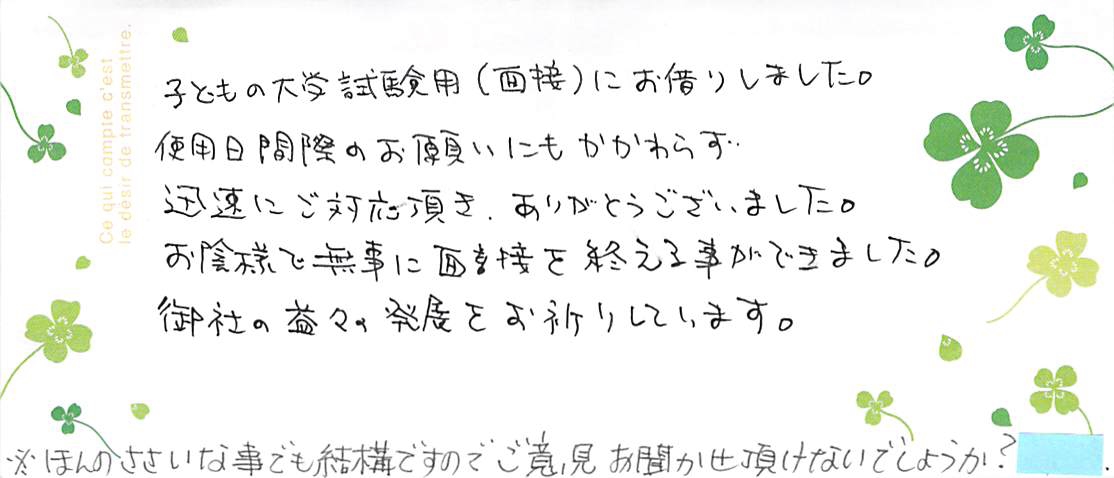 Ce qui compte c'est
le désir de transmettre.
子どもの大学試験用(面接)にお借りしました。
使用日間際のお願いにもかかわらず
迅速にご対応頂き、ありがとうございました。
お陰様で無事に面接を終える事ができました。
御社の益々の発展をお祈りしています。
※ほんのささいな事でも結構ですのでご意見お聞かせ頂けないでしょうか?